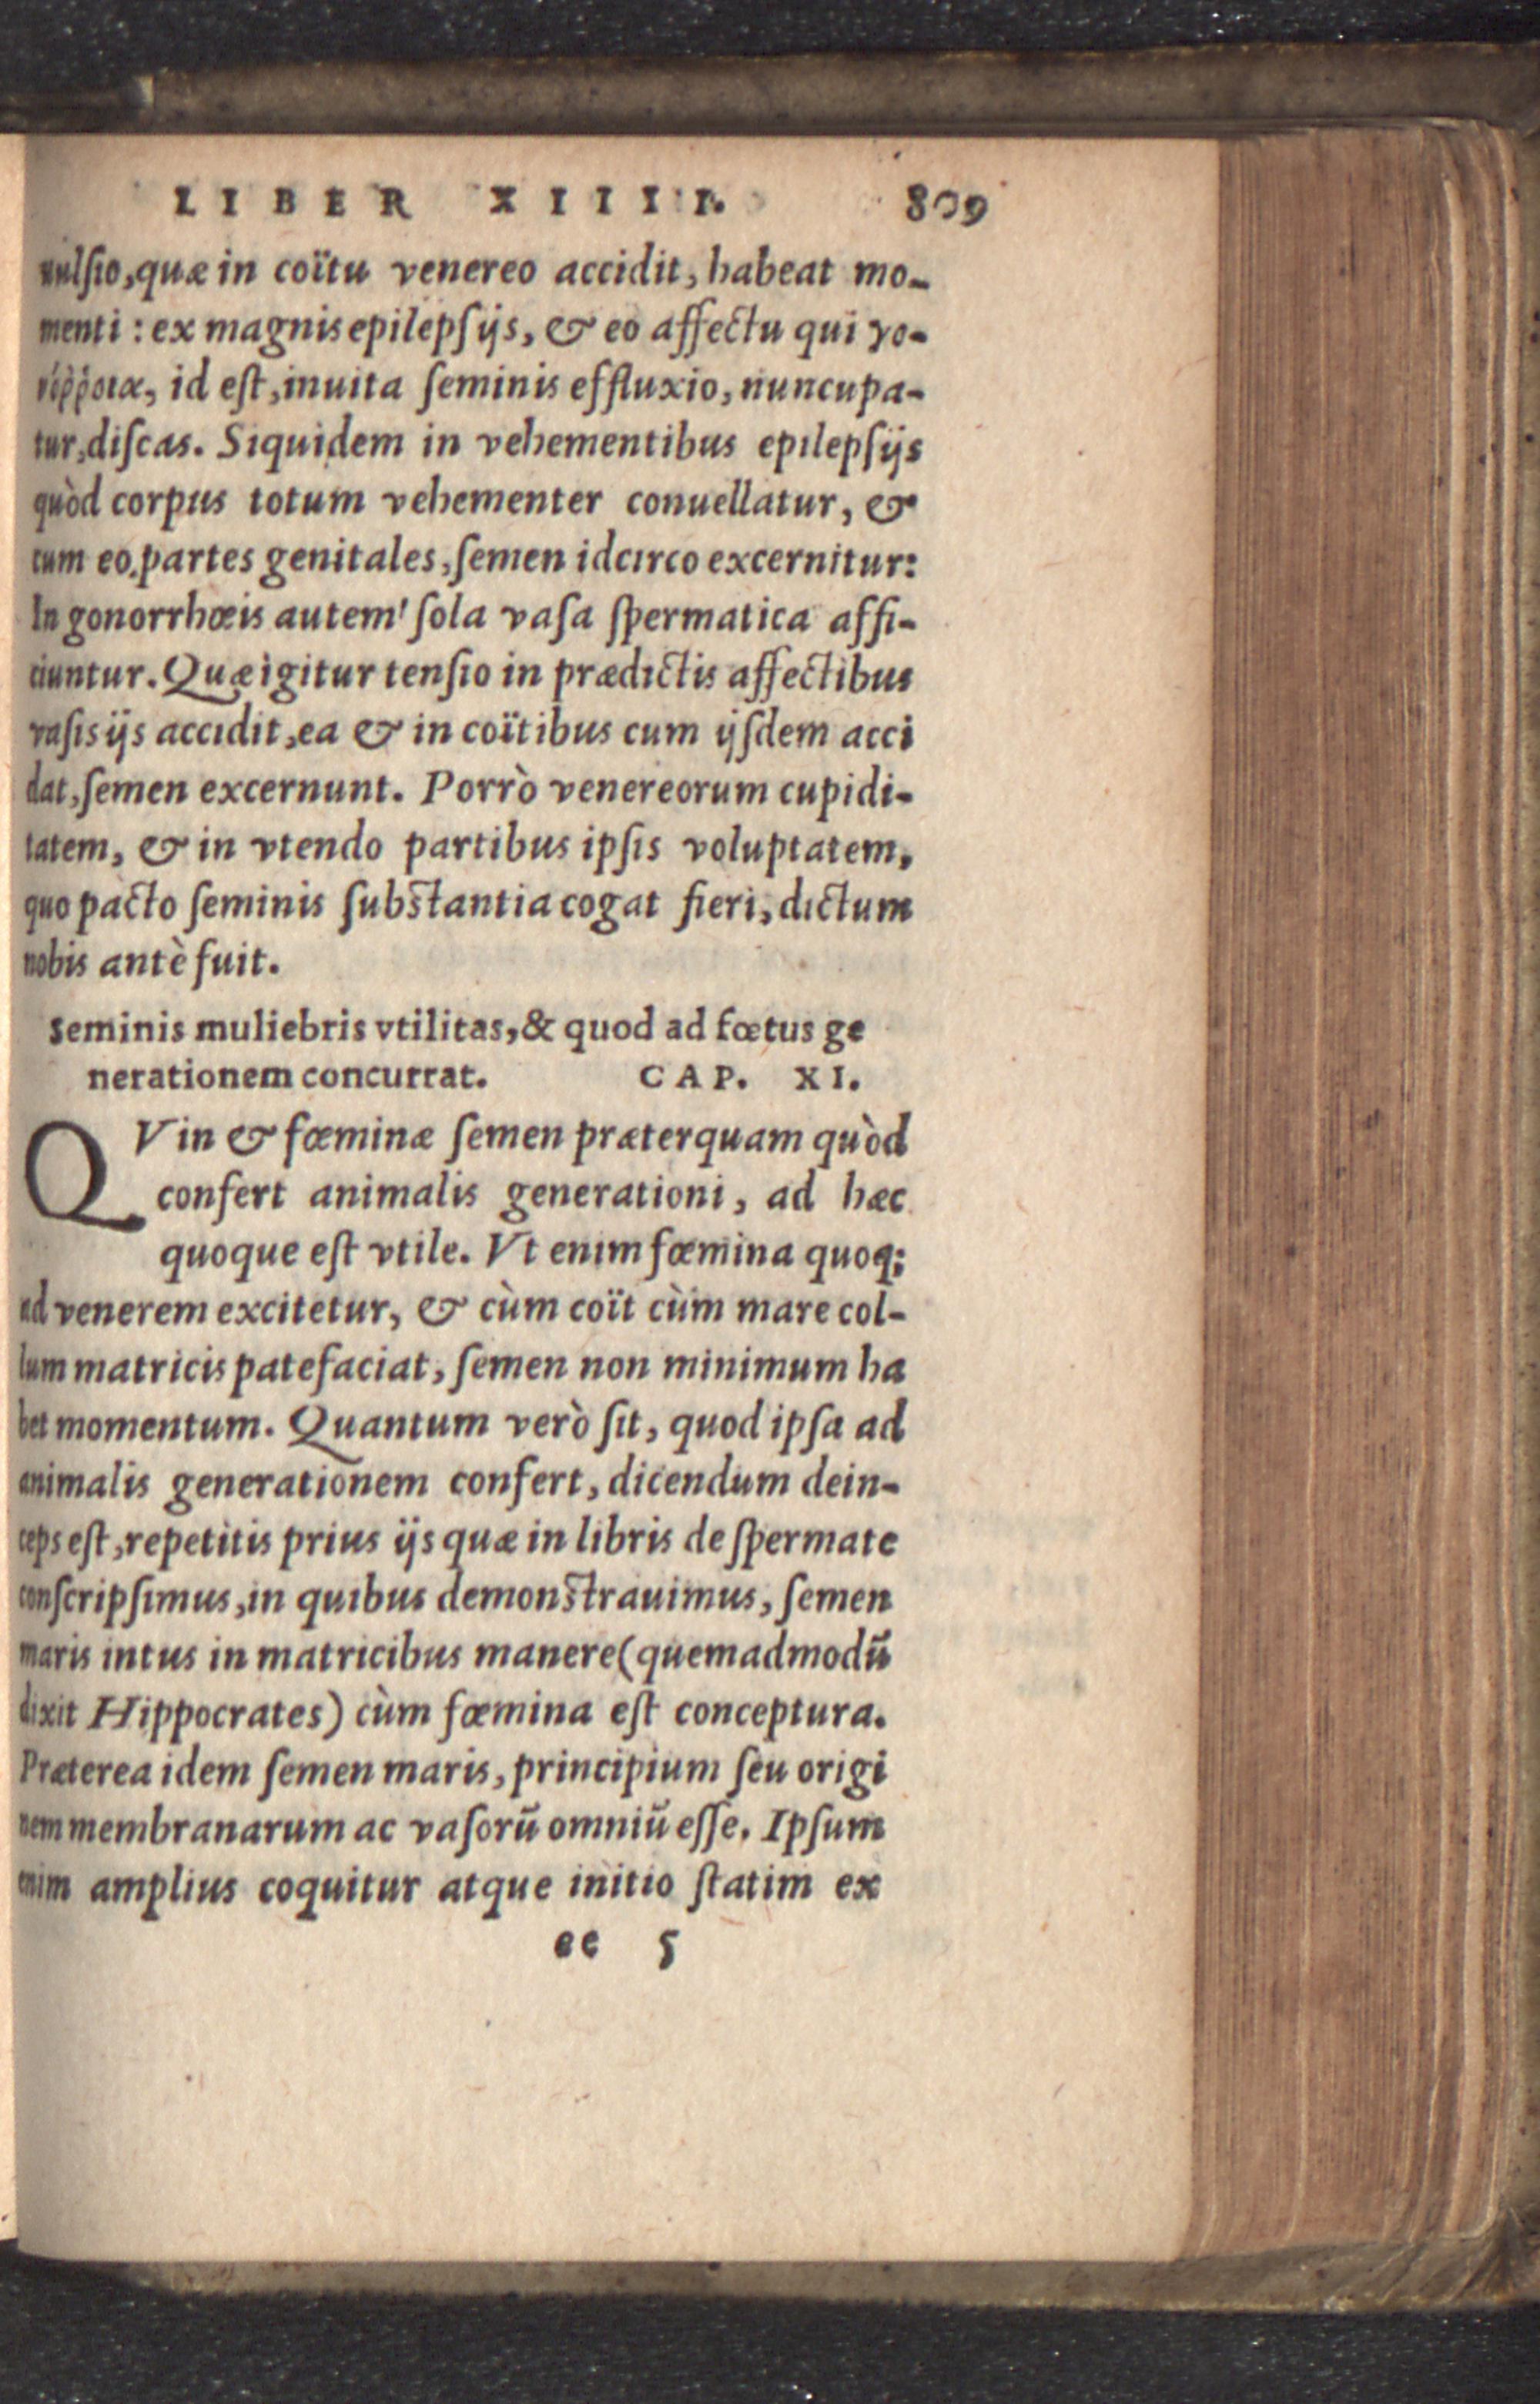 LIBER XIIII. 809
uulſio, quæ in coïtu venereo accidit, habeat mo-
menti : ex magnis epilepſijs, & eo affectu qui γο-
νόῤῥοια, id eſt, inuita ſeminis effluxio, nuncupa-
tur, diſcas. Siquidem in vehementibus epilepſijs
quòd corpus totum vehementer conuellatur, &
cum eo partes genitales, ſemen idcirco excernitur:
In gonorrhœis autem ſola vaſa ſpermatica affi-
ciuntur. Quæ igitur tenſio in prædictis affectibus
vaſis ijs accidit, ea & in coïtibus cum ijſdem acci
dat, ſemen excernunt. Porrò venereorum cupidi-
tatem, & in vtendo partibus ipſis voluptatem,
quo pacto ſeminis ſubſtantia cogat fieri, dictum
nobis antè fuit.
Seminis muliebris vtilitas, & quod ad fœtus ge
nerationem concurrat. CAP. XI.
QVin & fœminæ ſemen præterquam quòd
confert animalis generationi, ad hæc
quoque eſt vtile. Vt enim fœmina quoq;
ad venerem excitetur, & cùm coït cùm mare col-
lum matricis patefaciat, ſemen non minimum ha
bet momentum. Quantum verò ſit, quod ipſa ad
animalis generationem confert, dicendum dein-
ceps eſt, repetitis prius ijs quæ in libris de ſpermate
conſcripſimus, in quibus demonſtrauimus, ſemen
maris intus in matricibus manere (quemadmodū
dixit Hippocrates) cùm fœmina eſt conceptura.
Præterea idem ſemen maris, principium ſeu origi
nem membranarum ac vaſorū omniū eſſe. Ipſum
enim amplius coquitur atque initio ſtatim ex
ee 5